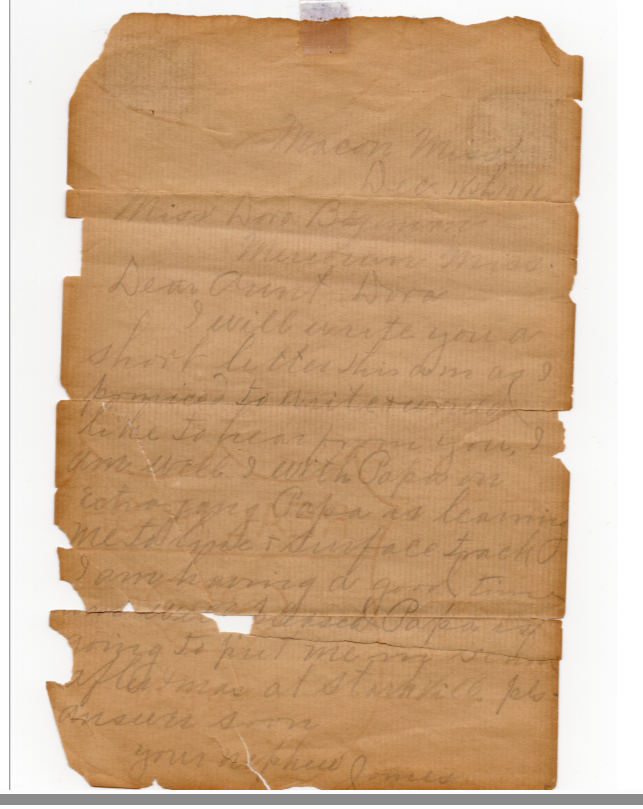 Macon Miss
Dec
Miss Dora
Meridian Miss.
Dear Aunt Dora
I will write you a
short letter this am as I
promised to write
like to hear from you. I
am well. I with Papa on
Extra gang Papa is learning
me to line & surface track
I am having a good time
Papa is
going to put me in
after xmas at Starkville pls.
answer soon
your nephew James